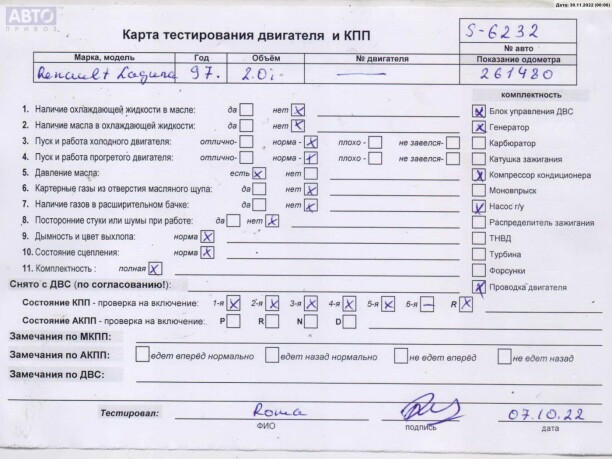 АВТО
ПРИВОЗ
Дата: 30.11.2022 (00:06)
Карта тестирования двигателя и КПП
S-6232
№ авто
Марка, модель Год Объём № двигателя Показание одометра
Renault Laguna 97. 2.0i- — 261480
комплектность
1. Наличие охлаждающей жидкости в масле: да нет X
2. Наличие масла в охлаждающей жидкости: да нет X
3. Пуск и работа холодного двигателя: отлично- норма - X плохо - не завелся-
4. Пуск и работа прогретого двигателя: отлично- норма - X плохо - не завелся-
5. Давление масла: есть X нет
6. Картерные газы из отверстия масляного щупа: да нет X
7. Наличие газов в расширительном бачке: да нет X
8. Посторонние стуки или шумы при работе: да нет X
9. Дымность и цвет выхлопа: норма X
10. Состояние сцепления: норма X
11. Комплектность : полная X
X Блок управления ДВС
X Генератор
Карбюратор
Катушка зажигания
X Компрессор кондиционера
Моновпрыск
X Насос г/у
Распределитель зажигания
ТНВД
Турбина
Форсунки
X Проводка двигателя
Снято с ДВС (по согласованию!):
Состояние КПП - проверка на включение: 1-я X 2-я X 3-я X 4-я X 5-я X 6-я — R X
Состояние АКПП - проверка на включение: P R N D
Замечания по МКПП:
Замечания по АКПП: едет вперёд нормально едет назад нормально не едет вперёд не едет назад
Замечания по ДВС:
Тестировал: Roma 07.10.22
ФИО подпись дата